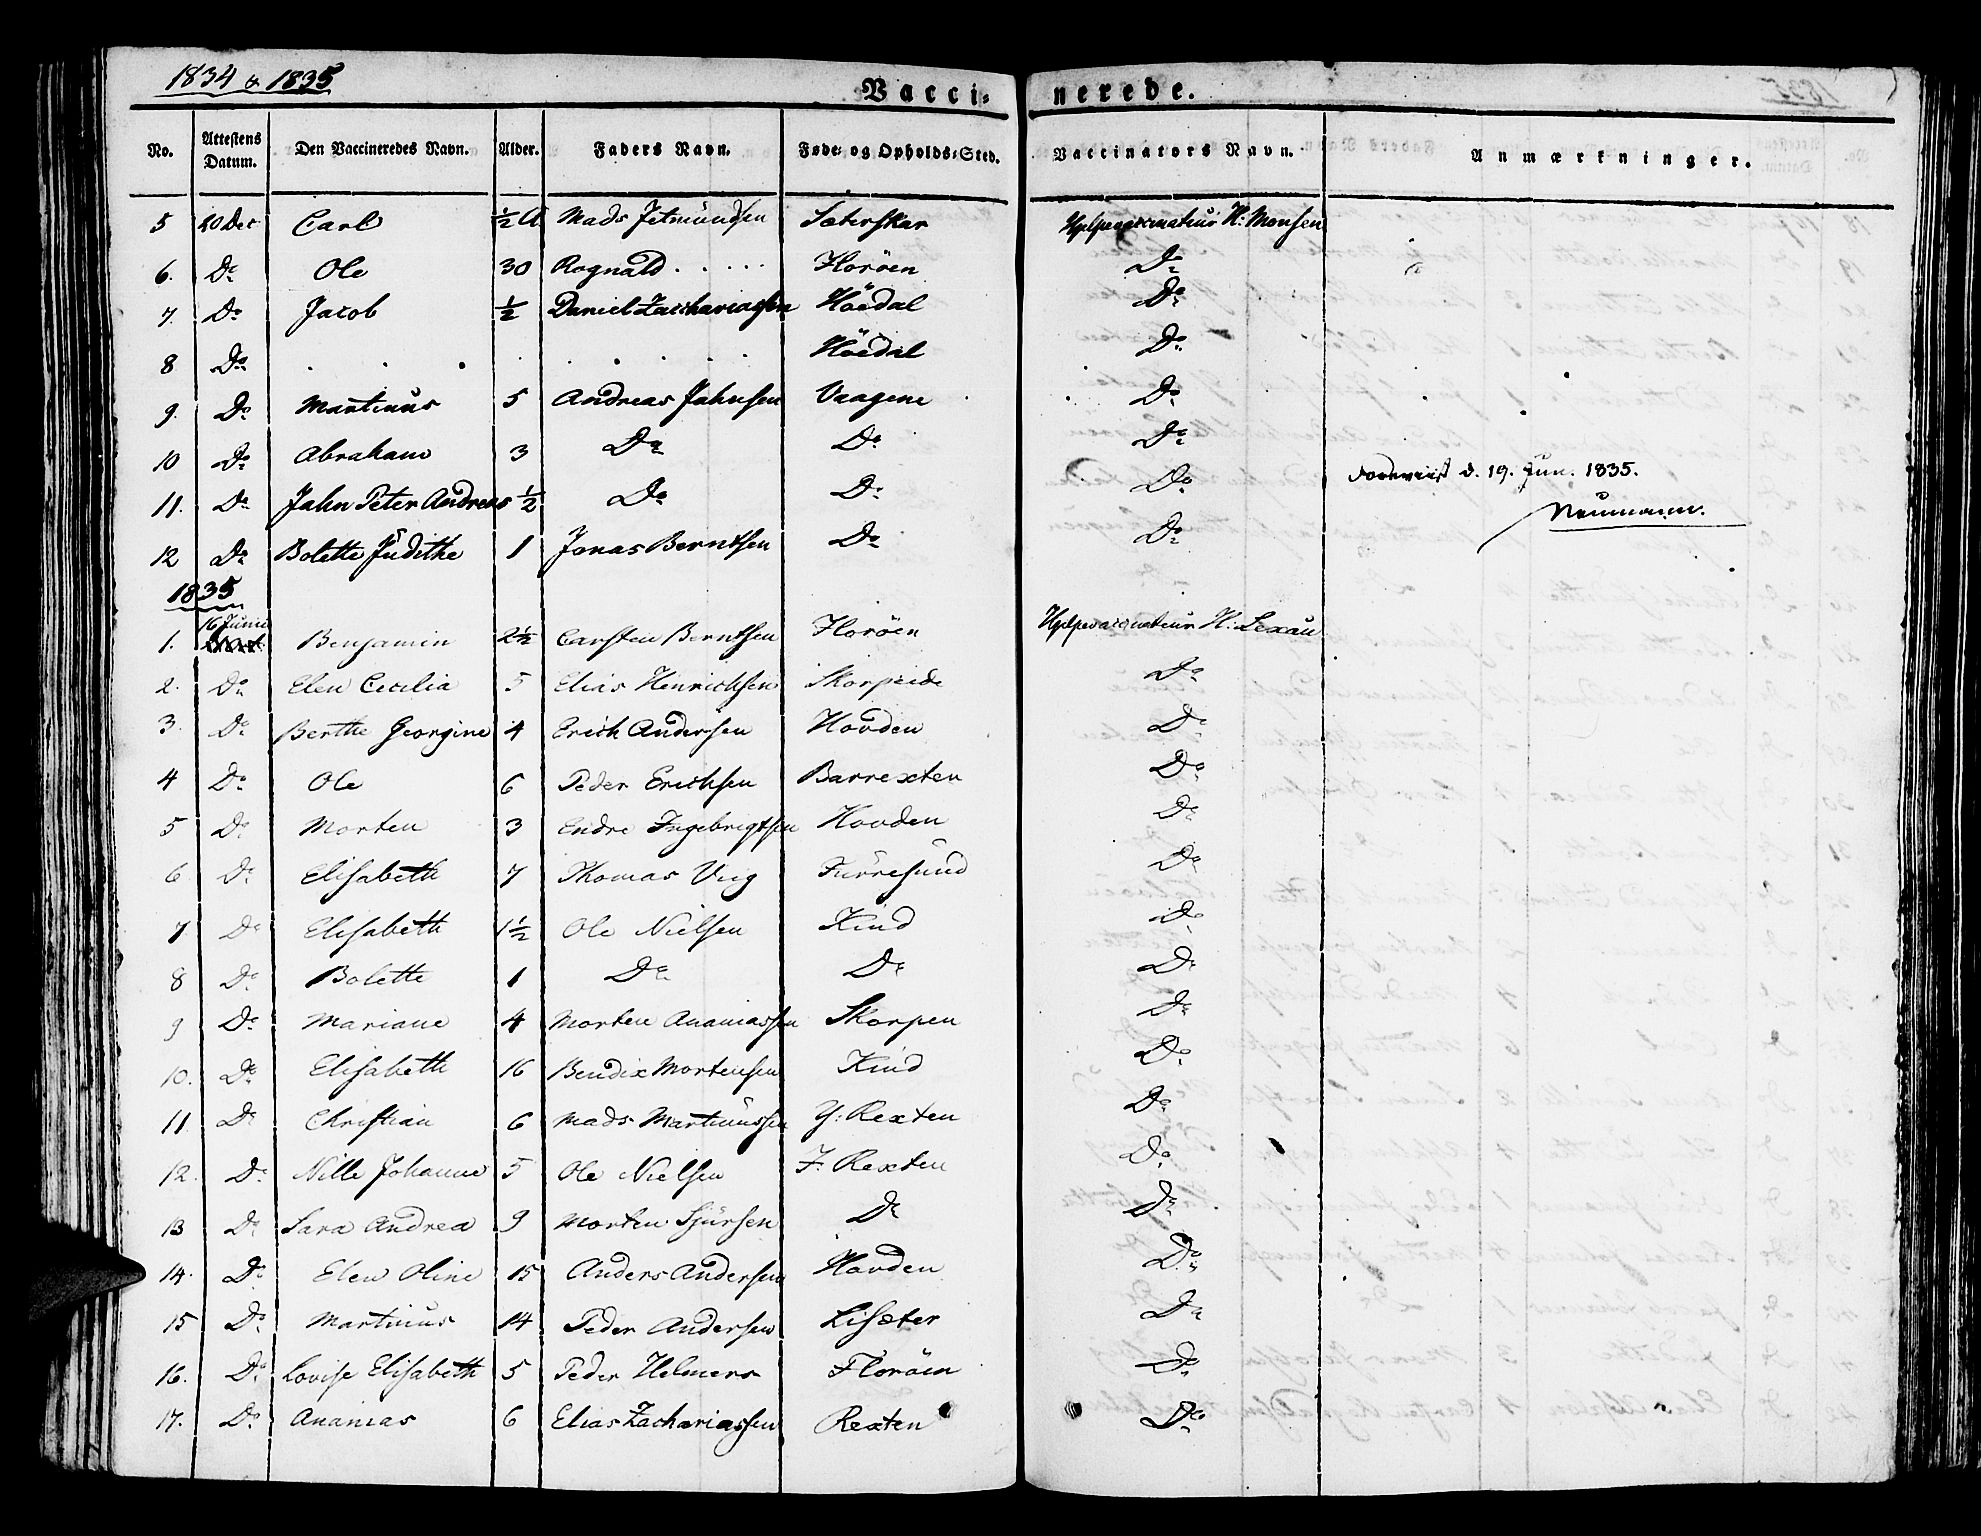 1834 & 1835
Vacci= nerede.
No. Attestens Datum. Den Vaccineredes Navn. Alder. Faders Navn. Føde= og Opholds=Sted. Vaccinators Navn. Anmærkninger.
5 20 Dec Carl ½ A Mads Jetmündsen Sæterskar Hjelpevaccinateur H: Monsen
6. Do Ole 30 Rognald . . . . . Floröen Do
7. Do Jacob ½ Daniel Zacchariassen Höidal Do
8 Do . . . . . . . . Höidal Do
9. Do Martinüs 5 Andreas Jahnsen Vaagene Do
10 Do Abraham 3 Do Do Do
11. Do Jahn Peter Andreas ½ Do Do Do
d. 19. Jun. 1835.
Neumann.
12 Do Bolette Jüdithe 1 Jonas Berntsen Do Do
1835
1. 16 Junii Benjamin 2½ Carsten Berntsen Floröen Hjelpevaccinateur H: Lexau
2. Do Elen Cecilia 5 Elias Henrichsen Skorpeide Do
3. Do Berthe Georgine 4 Erich Andersen Hovden Do
4 Do Ole 6 Peder Erichsen Barrexten Do
5 Do Morten 3 Endre Ingebrigtsen Hovden Do
6 Do Elisabeth 7 Thomas Viig Fürresünd Do
7 Do Elisabeth 1½ Ole Nielsen Kind Do
8 Do Bolette 1 Do Do Do
9 Do Mariane 4 Morten Ananiassen Skorpen Do
10. Do Elisabeth 16 Bendix Mortensen Kind Do
11 Do Christian 6 Mads Martinüssen Y: Rexten Do
12. Do Nille Johanne 5 Ole Nielsen I: Rexten Do
13 Do Sara Andrea 9 Morten Sjürsen Do Do
14. Do Elen Oline 15 Anders Andersen Hovden Do
15 Do Martinüs 14 Peder Andersen Lisæter Do
16. Do Lovise Elisabeth 5 Peder Helmers Floröen Do
17. Do Ananias 6 Elias Zachariassen Rexten Do